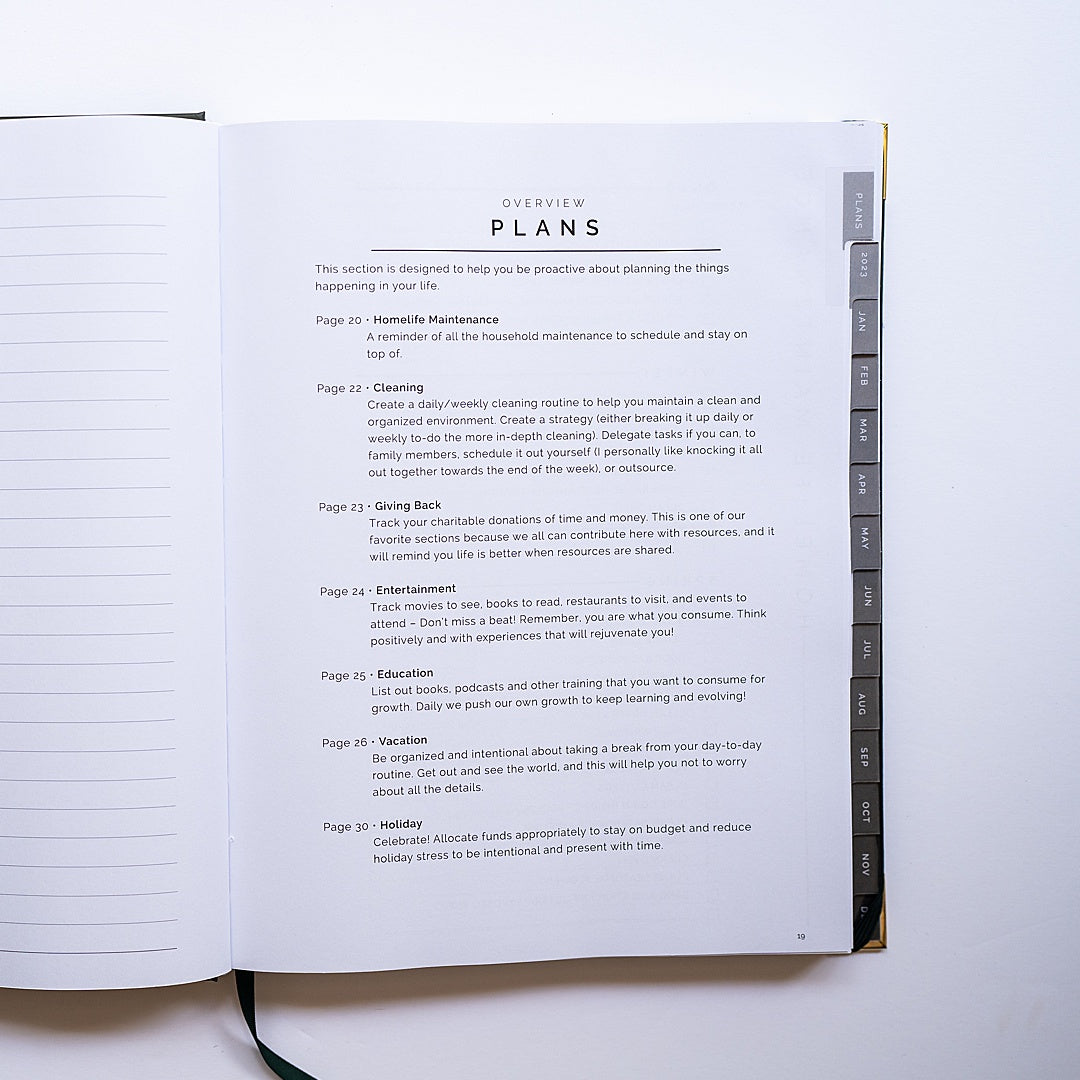 OVERVIEW
PLANS
This section is designed to help you be proactive about planning the things
happening in your life.
Page 20 • Homelife Maintenance
A reminder of all the household maintenance to schedule and stay on
top of.
Page 22 • Cleaning
Create a daily/weekly cleaning routine to help you maintain a clean and
organized environment. Create a strategy (either breaking it up daily or
weekly to-do the more in-depth cleaning). Delegate tasks if you can, to
family members, schedule it out yourself (I personally like knocking it all
out together towards the end of the week), or outsource.
Page 23 • Giving Back
Track your charitable donations of time and money. This is one of our
favorite sections because we all can contribute here with resources, and it
will remind you life is better when resources are shared.
Page 24 • Entertainment
Track movies to see, books to read, restaurants to visit, and events to
attend – Don't miss a beat! Remember, you are what you consume. Think
positively and with experiences that will rejuvenate you!
Page 25 • Education
List out books, podcasts and other training that you want to consume for
growth. Daily we push our own growth to keep learning and evolving!
Page 26 • Vacation
Be organized and intentional about taking a break from your day-to-day
routine. Get out and see the world, and this will help you not to worry
about all the details.
Page 30 • Holiday
Celebrate! Allocate funds appropriately to stay on budget and reduce
holiday stress to be intentional and present with time.
19
PLANS
2023
JAN
FEB
MAR
APR
MAY
JUN
JUL
AUG
SEP
OCT
NOV